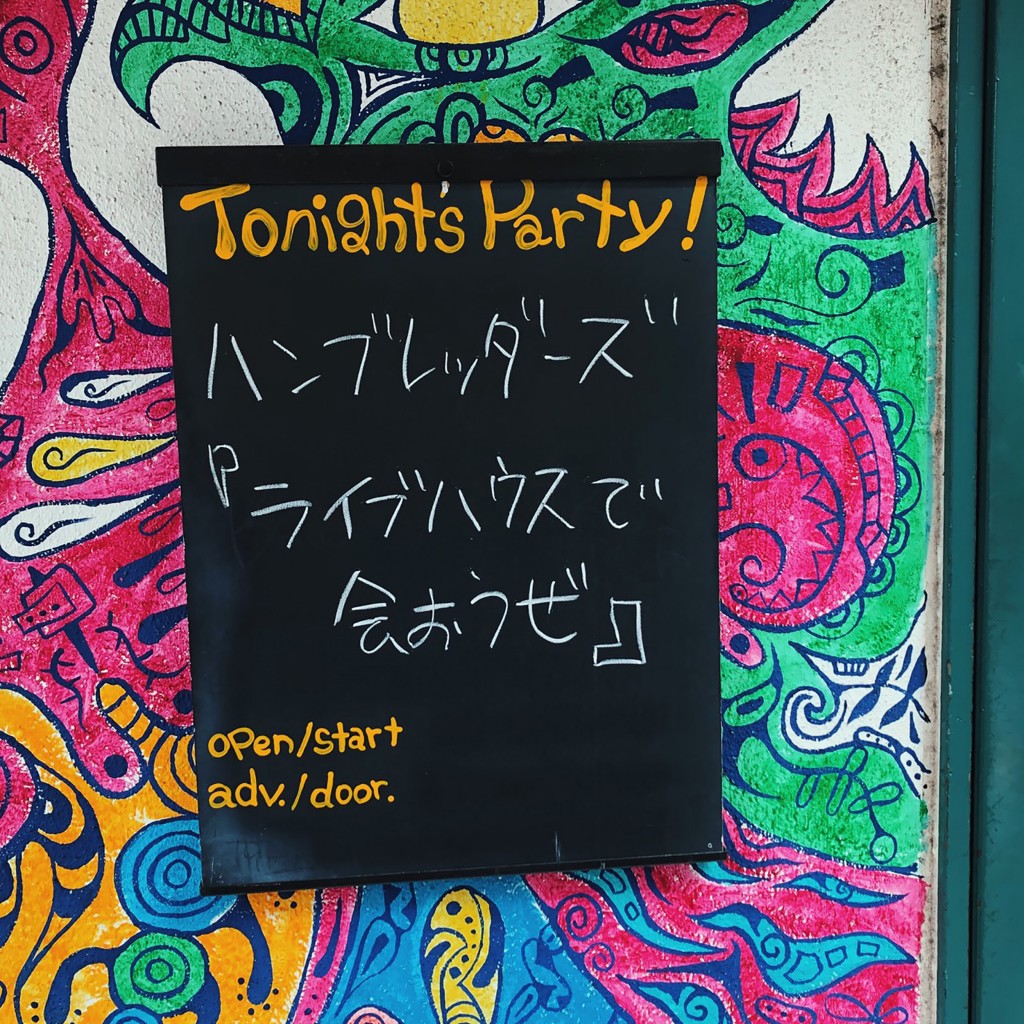 Tonight's Party!
ハンブレッダーズ
『ライブハウスで
会おうぜ』
open/start
adv./door.